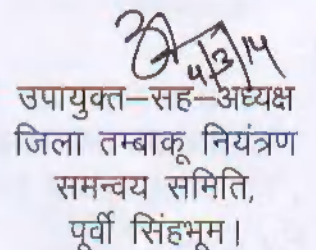 4/3/14
उपायुक्त–सह–अध्यक्ष
जिला तम्बाकू नियंत्रण
समन्वय समिति,
पूर्वी सिंहभूम।